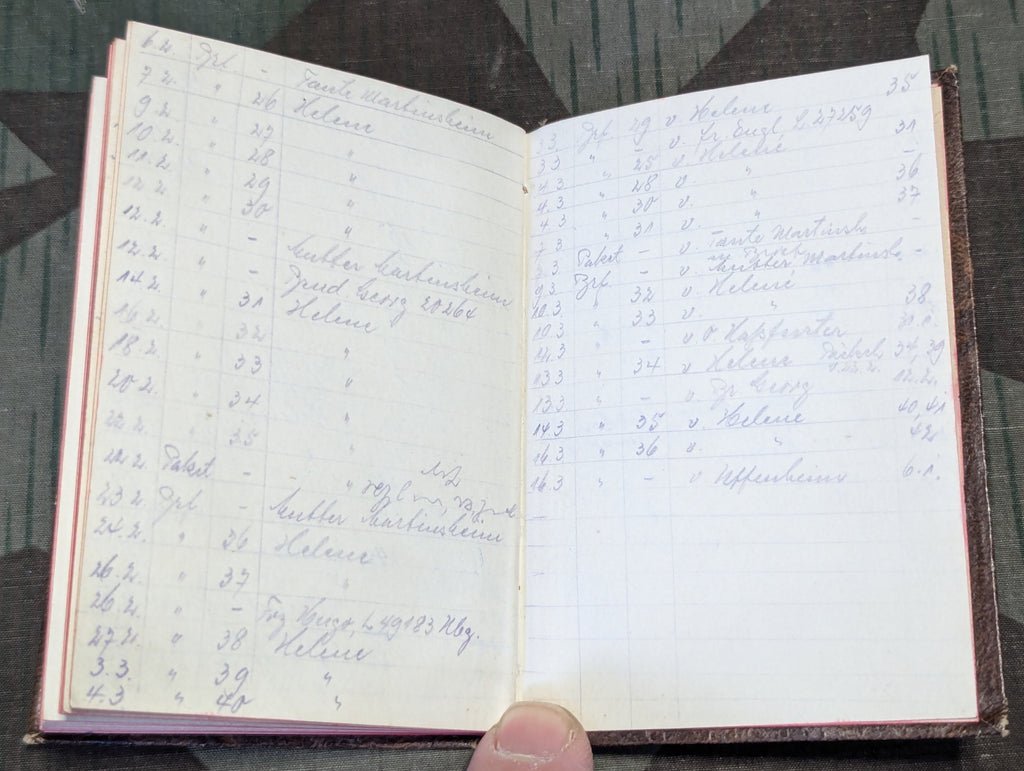 6.2. Brf. - Tante Martinsheim
7.2. " 26 Helene
9.2 " 27 "
10.2. " 28 "
11.2. " 29 "
12.2. " 30 "
12.2. " - Mutter Martinsheim
12.2. " - Georg 20264
14.2. " 31 Helene
16.2. " 32 "
18.2. " 33 "
20.2. " 34 "
22.2. " 35 "
22.2. Paket - "
23.2. Brf - Mutter Martinsheim
24.2. " 36 Helene
26.2. " 37 "
26.2. " - Hugo, L49183 Hbg.
27.2. " 38 Helene
3.3. " 39 "
4.3 " 40 "
3.3 Brf. 29 v Helene 35
3.3 " - v. L 27259
4.3 " 25 v. Helene 31
4.3 " 28 v. " -
4.3 " 30 v. " 36
" 31 v. " 37
7.3 Paket - v. Tante Martinsh. -
9.3. Brf. - v. Mutter Martinsh. -
10.3. " 32 v. Helene
10.3. " 33 v. " 38
12.3 " - v
13.3 " 34 v Helene 34, 39
13.3 " - v. Georg 12.2.
14.3 " 35 v. Helene 40, 41
16.3 " 36 v. " 42
16.3 " - v Uffenheim 6.1.